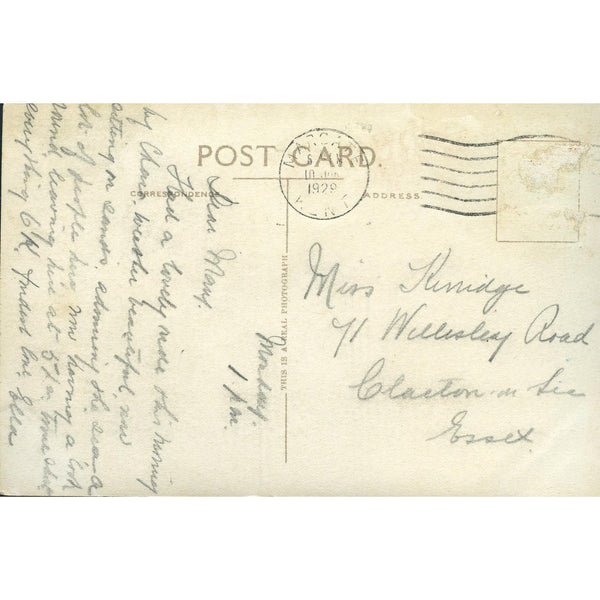 POST CARD.
CORRESPONDENCE
ADDRESS
THIS IS A REAL PHOTOGRAPH
MARGATE
10 JUN
1929
KENT
Monday.
1 pm.
Dear Mary.
Had a lovely ride this morning
by Chara, weather beautiful, now
sitting on sands, admiring the sea &
lots of people here, now having a look
round, leaving here at 5 pm,
everything OK, fondest love Ella
Miss Kerridge
71 Wellesley Road
Clacton on Sea
Essex.